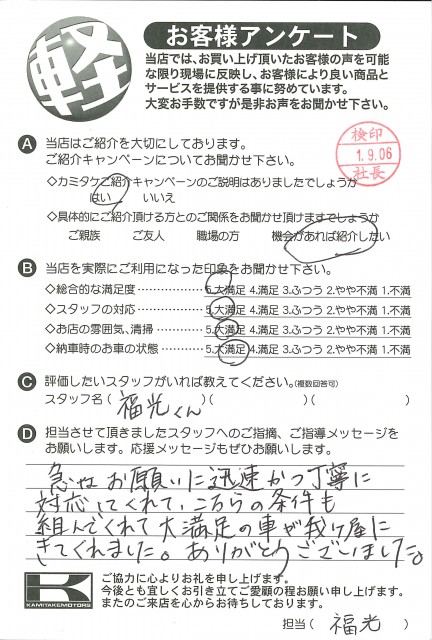 軽
お客様アンケート
当店では、お買い上げ頂いたお客様の声を可能
な限り現場に反映し、お客様により良い商品と
サービスを提供する事に努めています。
大変お手数ですが是非お声をお聞かせ下さい。
A 当店はご紹介を大切にしております。
ご紹介キャンペーンについてお聞かせ下さい。
検印
1.9.06
社長
◇カミタケご紹介キャンペーンのご説明はありましたでしょうか
はい いいえ
◇具体的にご紹介頂ける方とのご関係をお聞かせ頂けますでしょうか
ご親族 ご友人 職場の方 機会があれば紹介したい
B 当店を実際にご利用になった印象をお聞かせ下さい。
◇総合的な満足度 5.大満足 4.満足 3.ふつう 2.やや不満 1.不満
◇スタッフの対応 5.大満足 4.満足 3.ふつう 2.やや不満 1.不満
◇お店の雰囲気、清掃 5.大満足 4.満足 3.ふつう 2.やや不満 1.不満
◇納車時のお車の状態 5.大満足 4.満足 3.ふつう 2.やや不満 1.不満
C 評価したいスタッフがいれば教えてください。(複数回答可)
スタッフ名(福光くん)( )( )
D 担当させて頂きましたスタッフへのご指摘、ご指導メッセージを
お願いします。応援メッセージもぜひお願いします。
急なお願いに迅速かつ丁寧に
対応してくれて、こちらの条件も
組んでくれて大満足の車が我が屋に
きてくれました。ありがとうございました。
K
KAMITAKEMOTORS
ご協力に心よりお礼を申し上げます。
今後とも宜しくお引き立てご愛顧の程お願い申し上げます。
またのご来店を心からお待ちしております。
担当(福光)